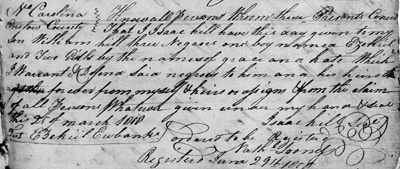 No Carolina } Know all Persons Whom these Presents Concern
County } That I Isaac hill have this day given to my
Son William hill three Negroes one boy named Ezekiel
and Two Girls by the names of grace and hate Which
I Warant & defend said negroes to him and his heirs
forever from myself & heirs or asigns from the claim
of all Persons Whatever given under my hand & seal
this 21st of march 1808 Isaac hill Seal
Test Ezekiel Eubanks
ordered to be Registered
Registered June 29th